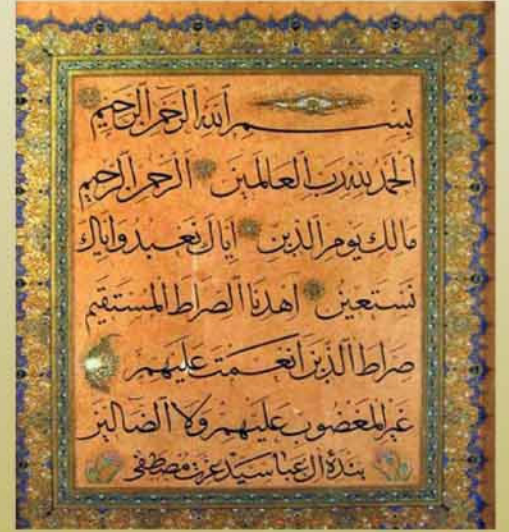 بسم الله الرحمن الرحيم
الحمد لله رب العالمين الرحمن الرحيم
مالك يوم الدين اياك نعبد واياك
نستعين اهدنا الصراط المستقيم
صراط الذين انعمت عليهم
غير المغضوب عليهم ولا الضالين
بندۀ آل عبا سيد عزت مصطفى